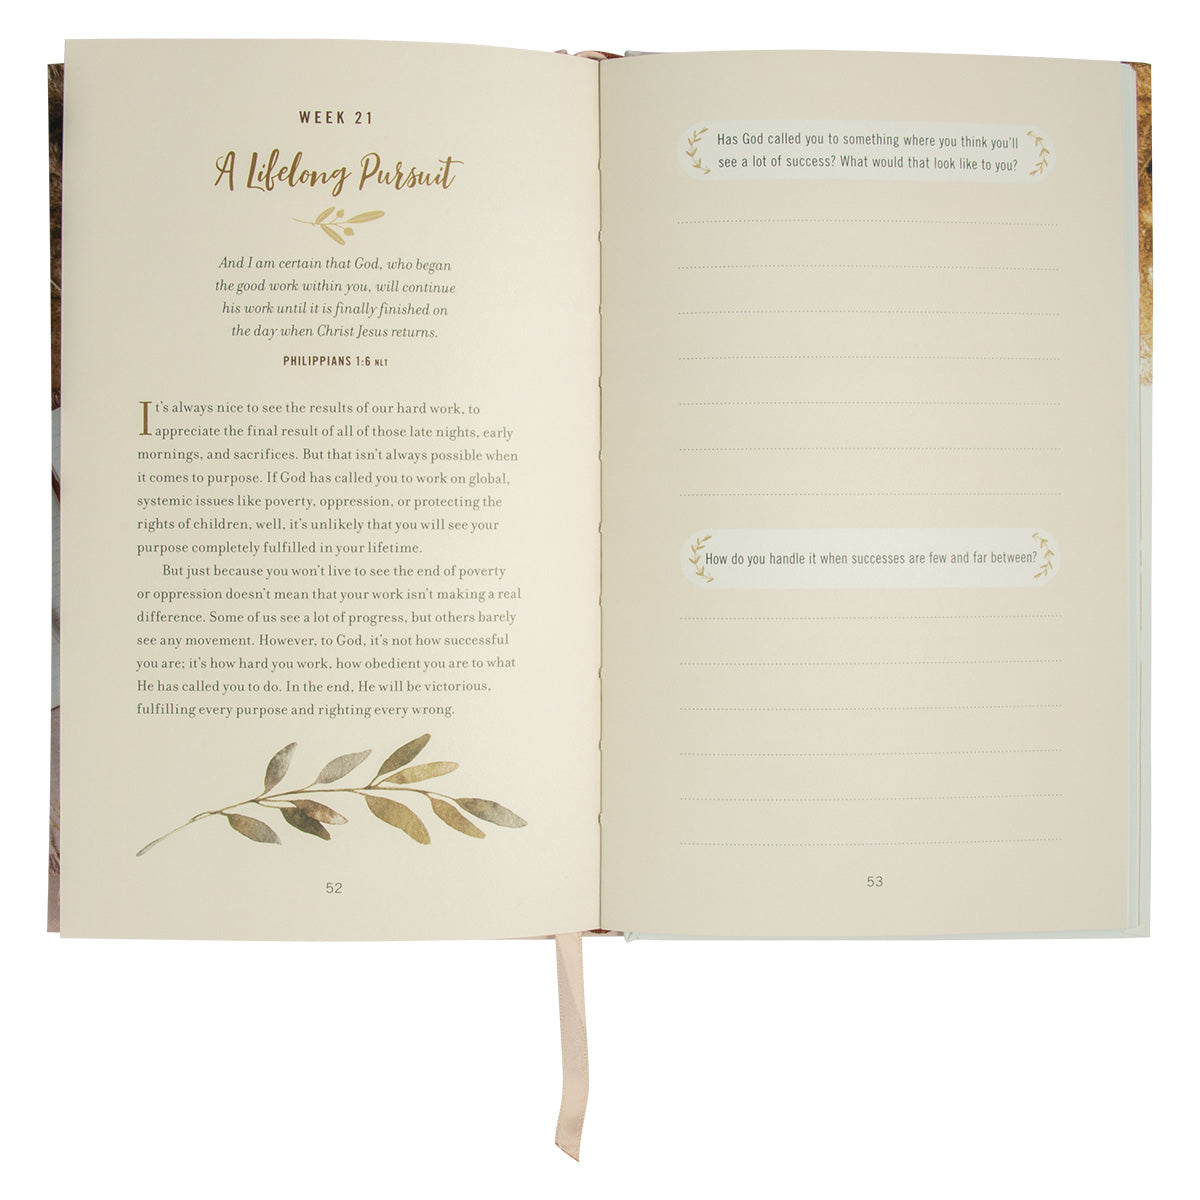 WEEK 21
A Lifelong Pursuit
And I am certain that God, who began
the good work within you, will continue
his work until it is finally finished on
the day when Christ Jesus returns.
PHILIPPIANS 1:6 NLT
It's always nice to see the results of our hard work, to
appreciate the final result of all of those late nights, early
mornings, and sacrifices. But that isn't always possible when
it comes to purpose. If God has called you to work on global,
systemic issues like poverty, oppression, or protecting the
rights of children, well, it's unlikely that you will see your
purpose completely fulfilled in your lifetime.
But just because you won't live to see the end of poverty
or oppression doesn't mean that your work isn't making a real
difference. Some of us see a lot of progress, but others barely
see any movement. However, to God, it's not how successful
you are; it's how hard you work, how obedient you are to what
He has called you to do. In the end, He will be victorious,
fulfilling every purpose and righting every wrong.
52
Has God called you to something where you think you'll
see a lot of success? What would that look like to you?
How do you handle it when successes are few and far between?
53